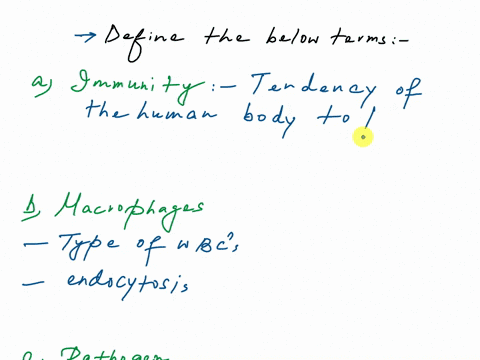 → Define the below terms:-
a) Immunity :- Tendency of
the human body to
b) Macrophages
- Type of WBC's
- endocytosis
c. Pathogen